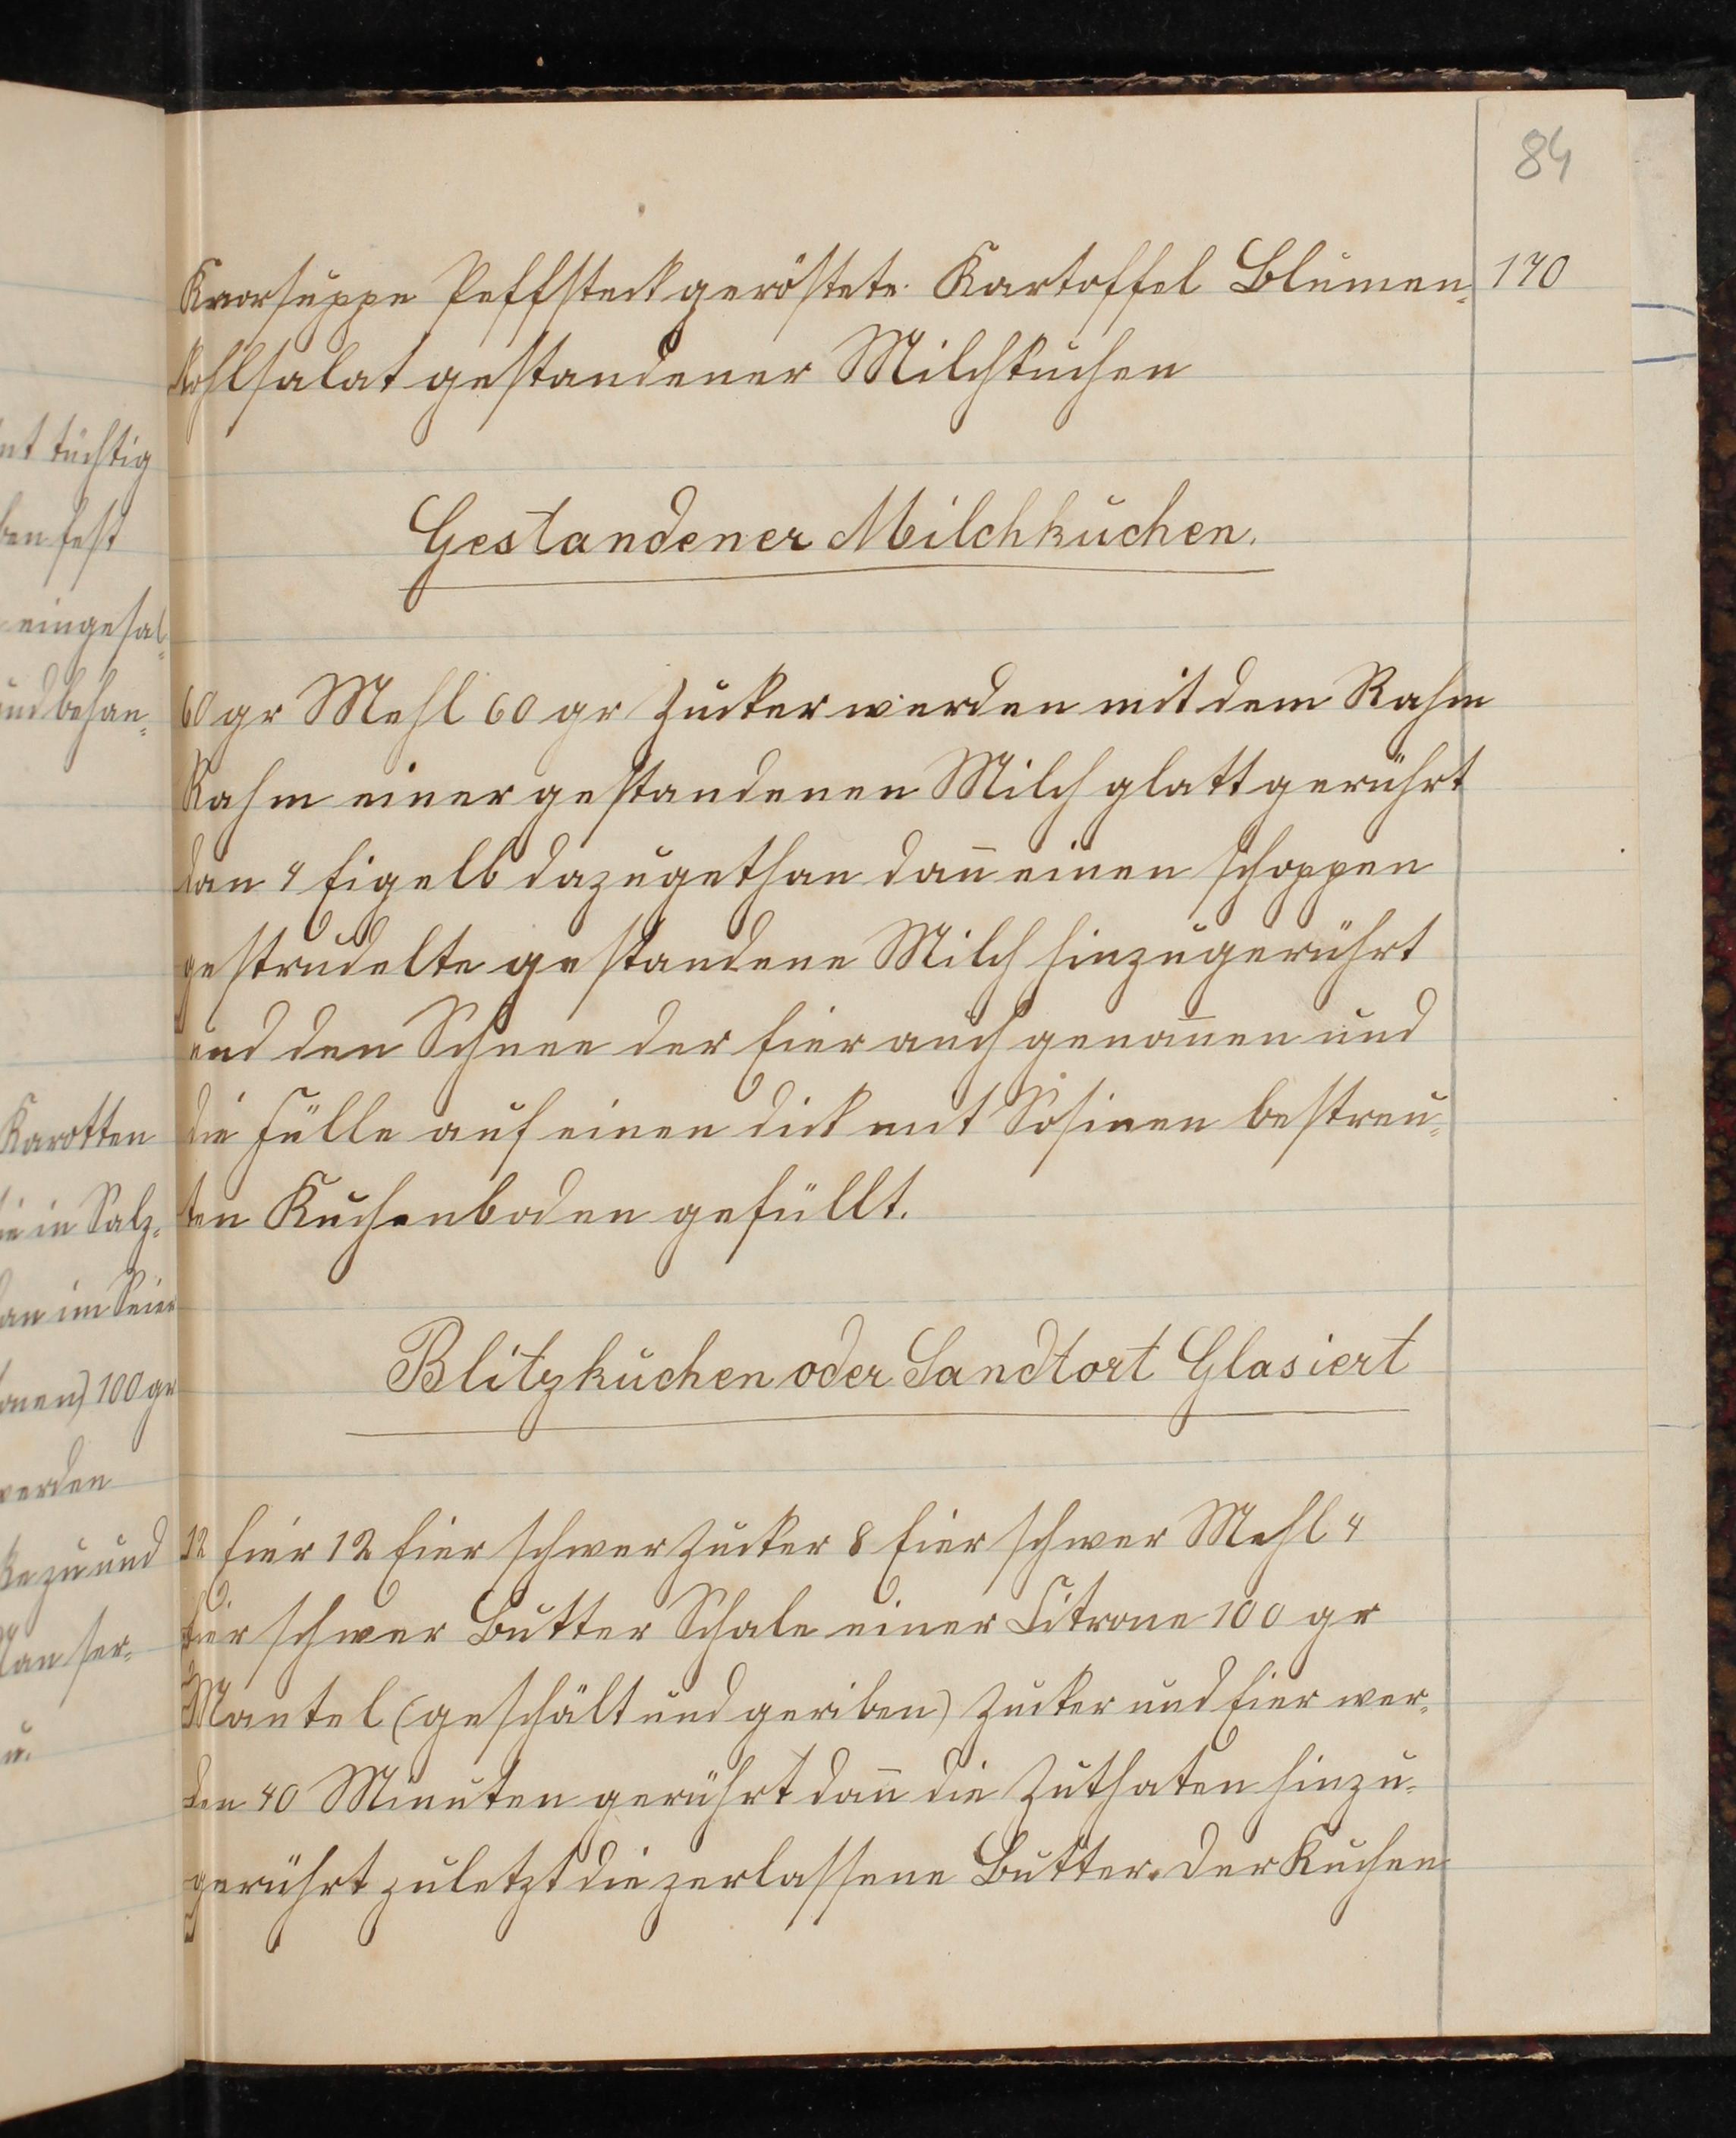 84
Knorsuppe Peffsteck geröstete Kartoffel Blumen- 170
kohlsalat gestandener Milchkuchen
Gestandener Milchkuchen.
60 gr Mehl 60 gr Zucker werden mit dem Rahm
Rahm einer gestandenen Milch glatt gerührt
dan 4 Eigelb dazugethan dañ einen Schoppen
gestrudelte gestandene Milch hinzugerührt
und den Schnee der Eier auch genom̄en und
die Fülle auf einen dick mit Rosinen bestreu-
ten Kuchenboden gefüllt.
Blitzkuchen oder Sandtort Glasiert
12 Eier 12 Eier schwer Zucker 8 Eier schwer Mehl 4
Eier schwer Butter Schale einer Citrone 100 gr
Mantel (geschält und geriben) Zucker und Eier wer-
den 40 Minuten gerührt dañ die Zuthaten hinzu-
gerührt zuletzt die zerlassene Butter. Der Kuchen
tüchtig
fest
eingesal-
und behan-
Karotten
in Salz-
100 gr
werden
zu und
ser-